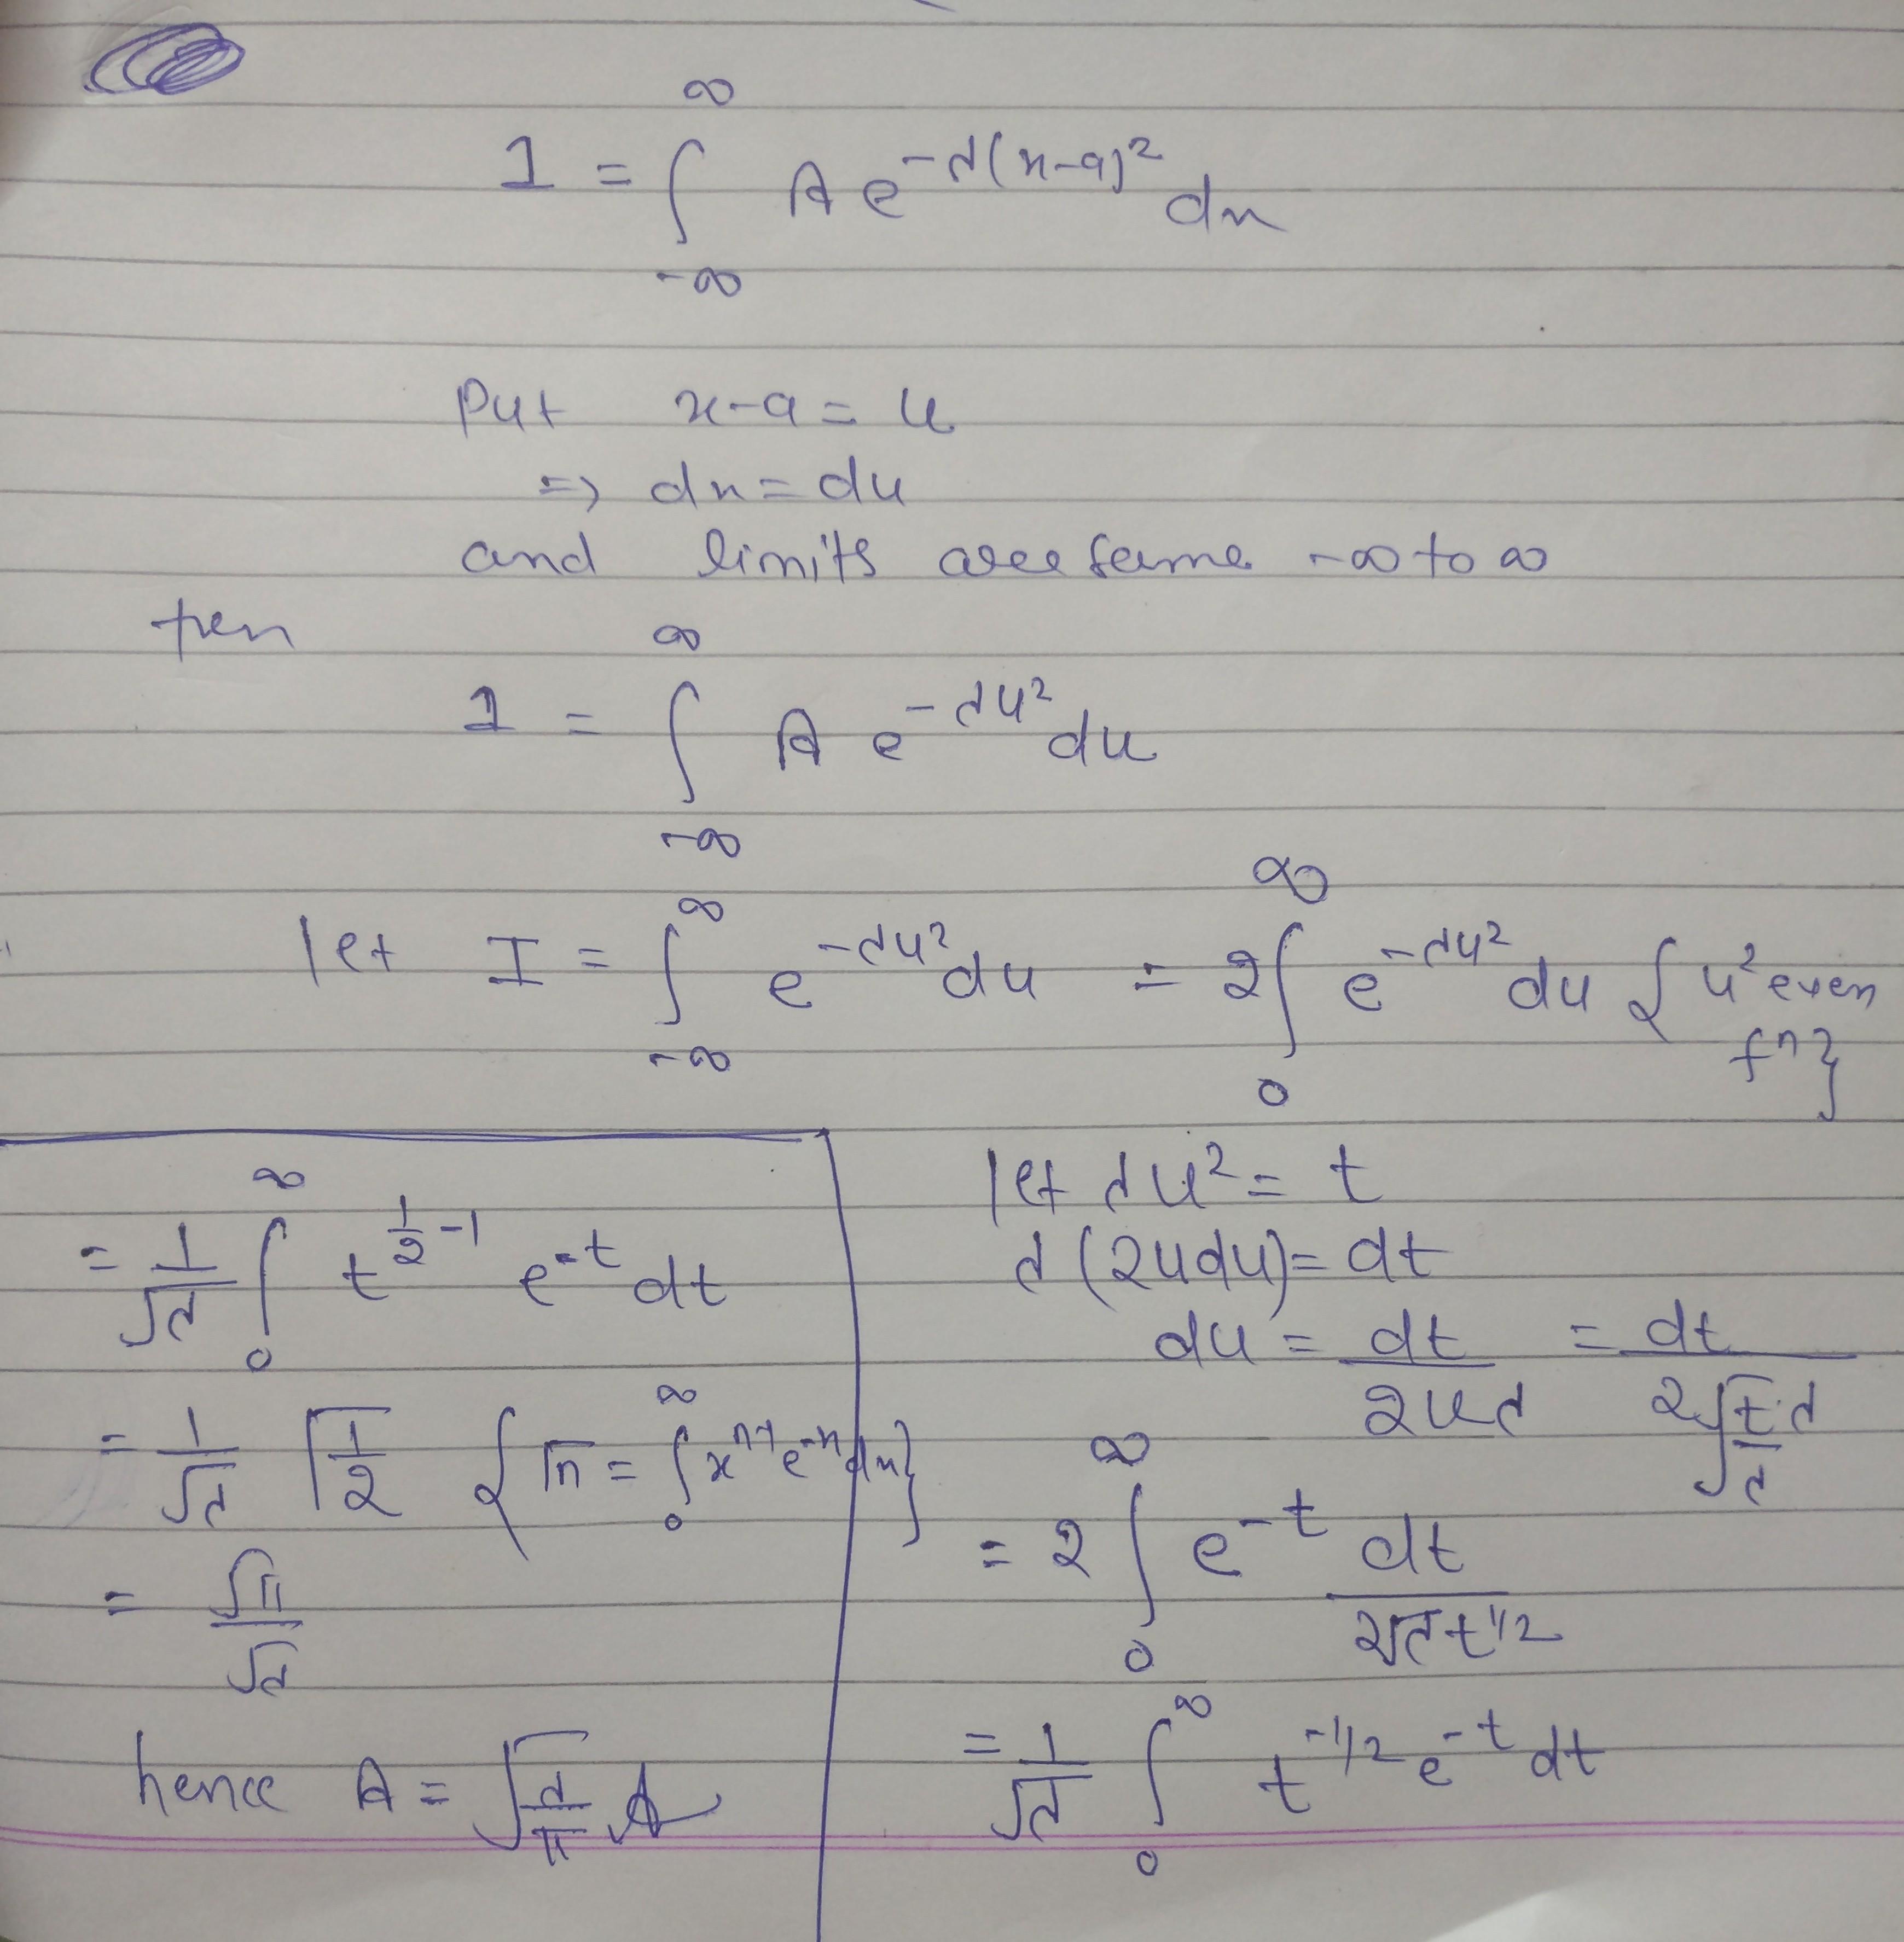 1 = ∫_{-∞}^{∞} A e^{-λ(x-a)²} dx
Put x-a = u
=> dx = du
and limits are same -∞ to ∞
then
1 = ∫_{-∞}^{∞} A e^{-λu²} du
let I = ∫_{-∞}^{∞} e^{-λu²} du = 2∫_{0}^{∞} e^{-λu²} du { u² even
fⁿ}
let λu² = t
λ(2udu) = dt
du = dt/(2uλ) = dt/(2√(t/λ)·λ)
= 2 ∫_{0}^{∞} e^{-t} dt/(2√λ t^{1/2})
= 1/√λ ∫_{0}^{∞} t^{-1/2} e^{-t} dt
= 1/√λ ∫_{0}^{∞} t^{1/2 - 1} e^{-t} dt
= 1/√λ Γ(1/2) { Γn = ∫_{0}^{∞} x^{n-1} e^{-x} dx}
= √π/√λ
hence A = √(λ/π)